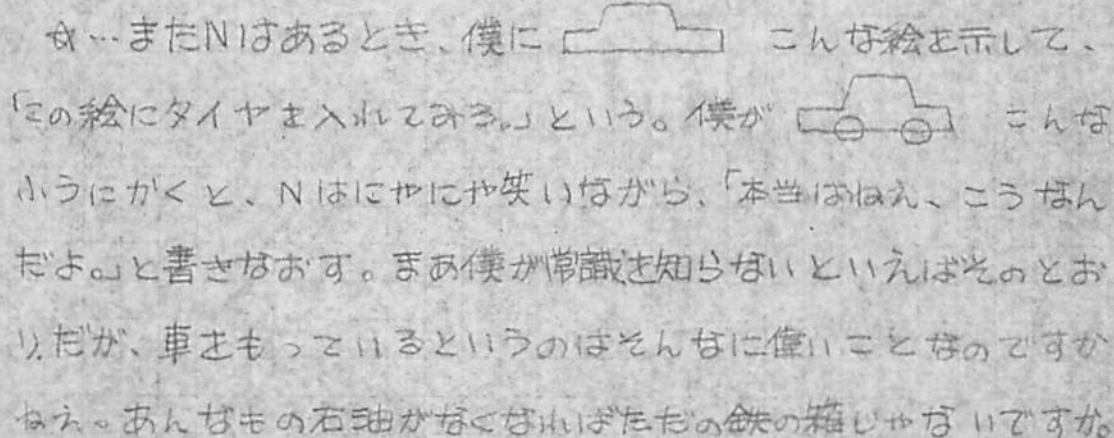 ☆…またNはあるとき、僕に こんな絵を示して、
「この絵にタイヤを入れてみろ。」という。僕が こんな
ふうにかくと、Nはにやにや笑いながら、「本当はねえ、こうなん
だよ。」と書きなおす。まあ僕が常識を知らないといえばそのとお
りだが、車をもっているというのはそんなに偉いことなのですか
ねえ。あんなもの石油がなくなればただの鉄の箱じゃないですか。